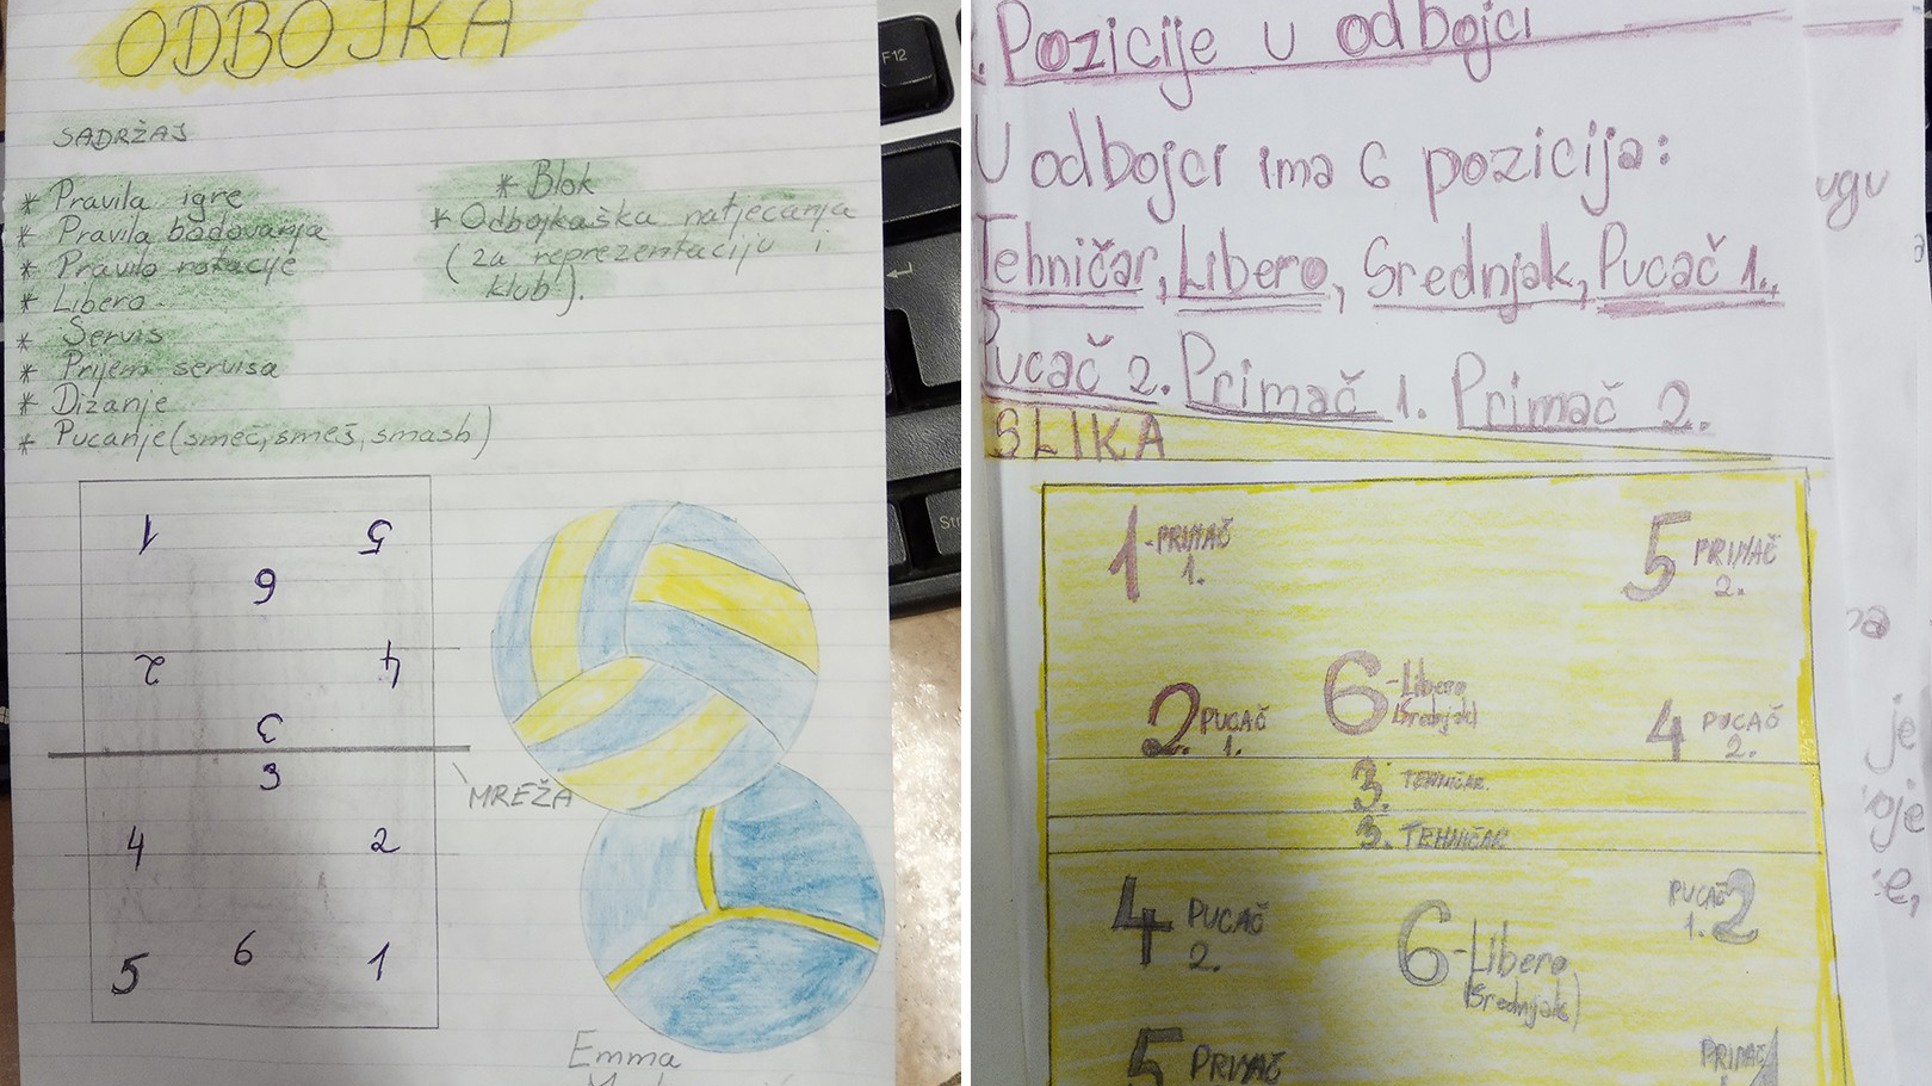 ODBOJKA
SADRŽAJ
* Pravila igre
* Pravila bodovanja
* Pravila rotacije
* Libero
* Servis
* Prijem servisa
* Dizanje
* Pucanje (smeč, smeš, smash)
* Blok
* Odbojkaška natjecanja
(za reprezentaciju i
klub).
1 5
6
2 4
3
3
MREŽA
4 2
6
5 1
Emma
F12
Pozicije u odbojci
U odbojci ima 6 pozicija:
Tehničar, Libero, Srednjak, Pucač 1.,
Pucač 2. Primač 1. Primač 2.
SLIKA
1-PRIMAČ 1.
5 PRIMAČ 2.
2. PUCAČ 1.
6-Libero (Srednjak)
4 PUCAČ 2.
3. TEHNIČAR.
3. TEHNIČAR
4 PUCAČ 2.
6-Libero (Srednjak)
PUCAČ 1. 2
5 PRIMAČ
PRIMAČ 1
ugu
je